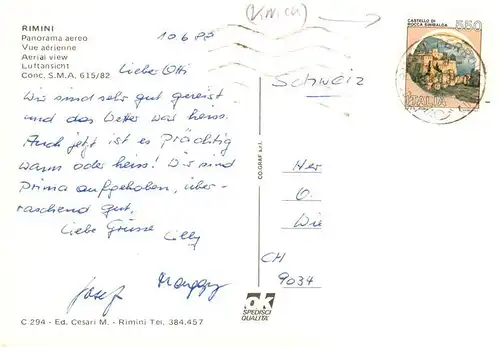 RIMINI
Panorama aereo
Vue aérienne
Aerial view
Luftansicht
Conc. S.M.A. 615/82
10.6.88
CASTELLO DI
ROCCA SINIBALDA
550
ITALIA
Schweiz
Liebe Otti
Wir sind sehr gut gereist
und das Wetter war heiss.
Auch jetzt ist es Prächtig
warm oder heiss! Wir sind
prima aufgehoben, über-
raschend gut.
Liebe Grüsse
Lilly
Josef
CO-GRAF s.r.l.
Her
O.
Wie
CH
9034
ak
SPEDISCI
QUALITÀ
C 294 - Ed. Cesari M. - Rimini Tel. 384.457